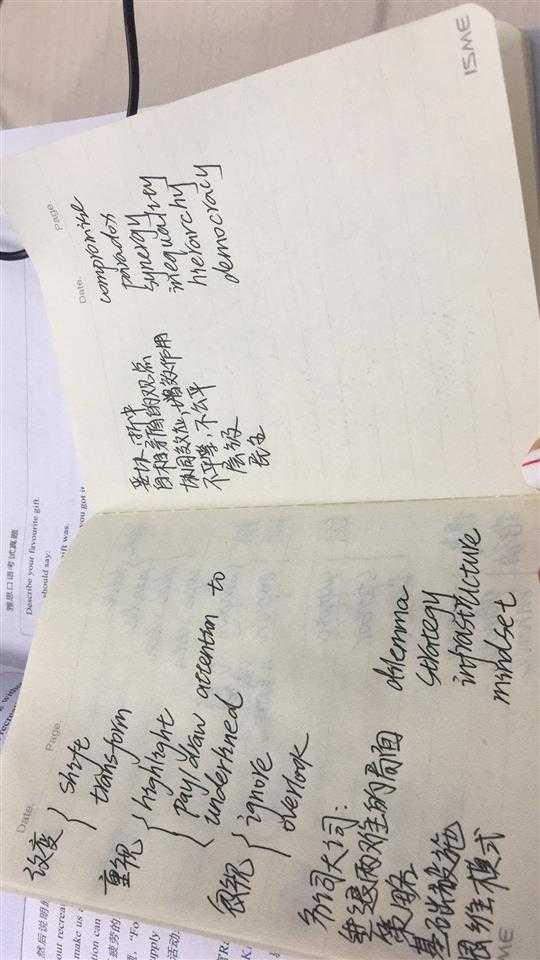 Date.
Page.
改变 { shift
transform
重视 { highlight
pay/draw attention to
underlined
忽视 { ignore
overlook
名词大词:
进退两难的局面 dilemma
策略 strategy
基础设施 infrastructure
思维模式 mindset
Date.
Page
妥协,折中 compromise
自相矛盾的观点 paradox
协同效应,增效作用 synergy
不平等,不公平 inequality
层级 hierarchy
民主 democracy
ISME
雅思口语考试真题
Describe your favourite gift.
should say:
ift was.
you got it
然后说明
our recrea
make us
tion can
疲劳的
"Fo
upply
活动